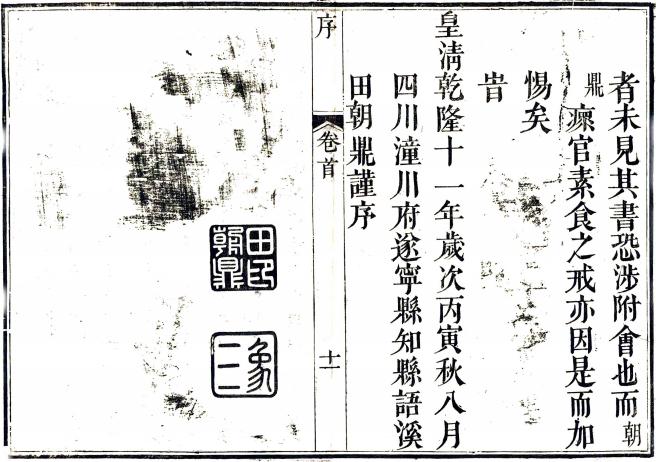 者未見其書恐涉附會也而朝
鼎瘝官素食之戒亦因是而加
惕矣
旹
皇清乾隆十一年歲次丙寅秋八月
四川潼川府遂寧縣知縣語溪
田朝鼎謹序
序
卷首
十一
田印朝鼎
象三